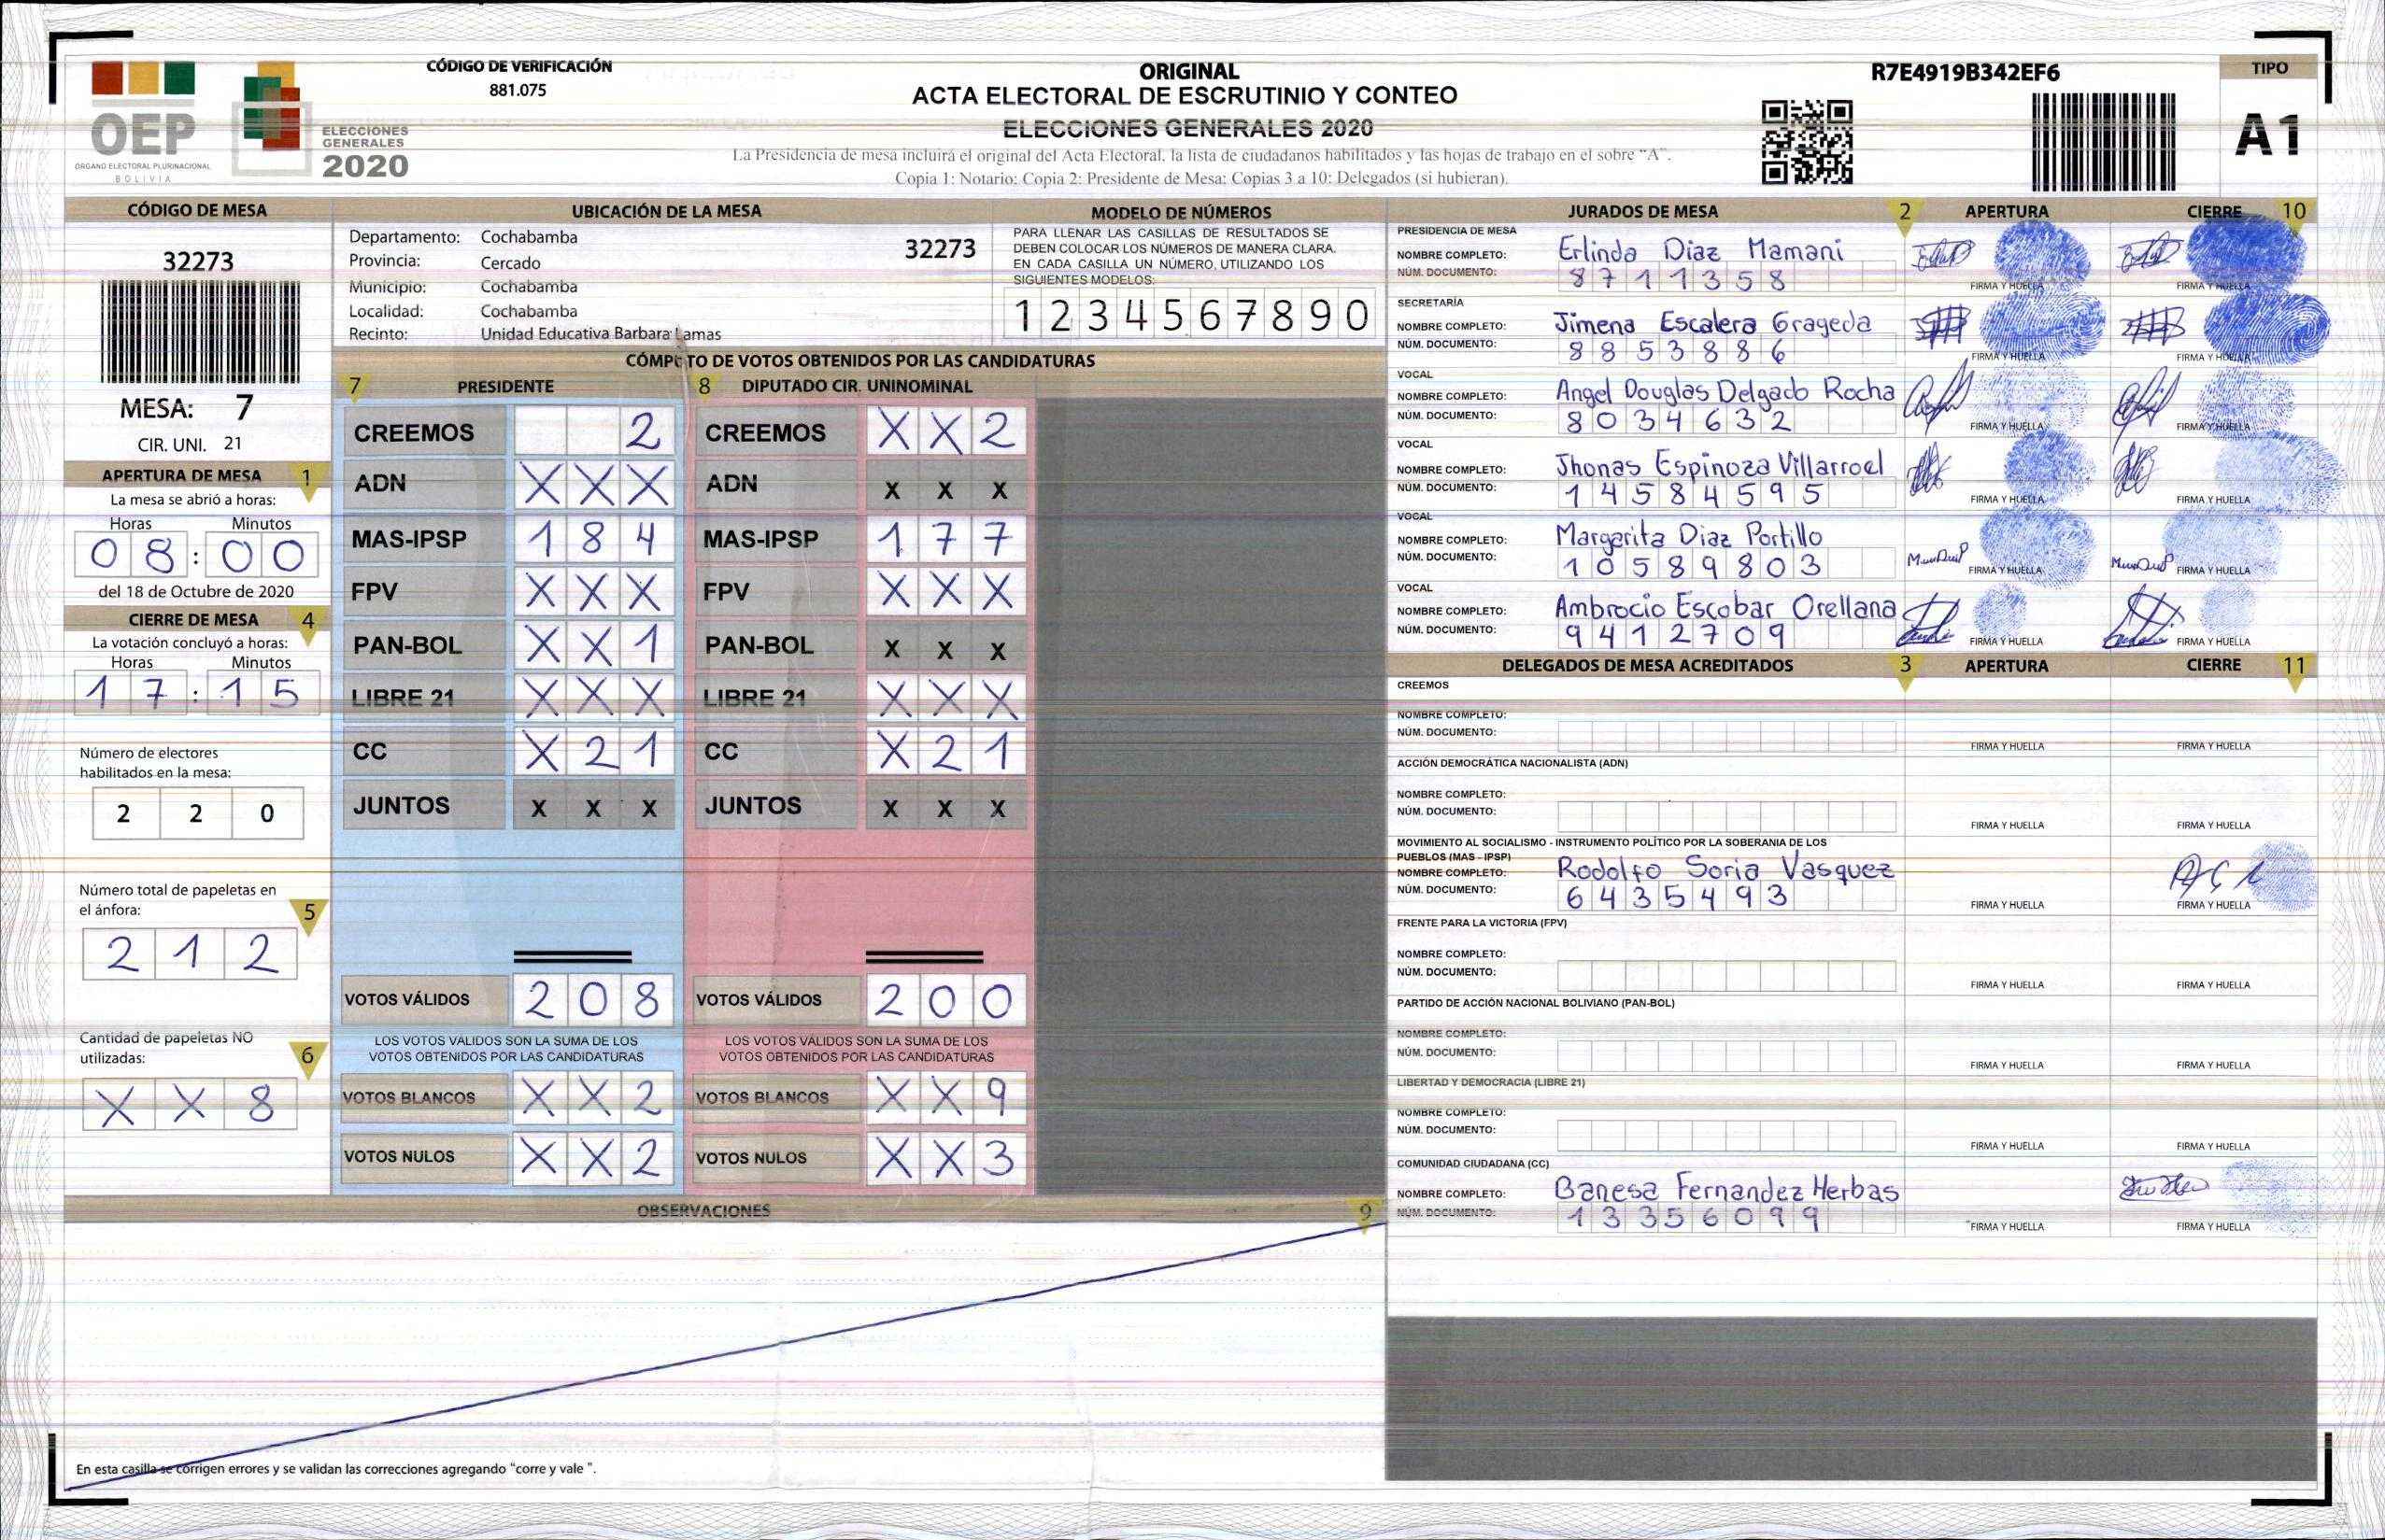 OEP
ORGANO ELECTORAL PLURINACIONAL
BOLIVIA
ELECCIONES
GENERALES
2020
CÓDIGO DE VERIFICACIÓN
881.075
ORIGINAL
ACTA ELECTORAL DE ESCRUTINIO Y CONTEO
ELECCIONES GENERALES 2020
La Presidencia de mesa incluirá el original del Acta Electoral, la lista de ciudadanos habilitados y las hojas de trabajo en el sobre "A".
Copia 1: Notario; Copia 2: Presidente de Mesa; Copias 3 a 10: Delegados (si hubieran).
R7E4919B342EF6
TIPO
A1
CÓDIGO DE MESA
32273
MESA: 7
CIR. UNI. 21
APERTURA DE MESA 1
La mesa se abrió a horas:
Horas Minutos
0 8 : 0 0
del 18 de Octubre de 2020
CIERRE DE MESA 4
La votación concluyó a horas:
Horas Minutos
1 7 : 1 5
Número de electores
habilitados en la mesa:
2 2 0
Número total de papeletas en
el ánfora: 5
2 1 2
Cantidad de papeletas NO
utilizadas: 6
X X 8
UBICACIÓN DE LA MESA
Departamento: Cochabamba
32273
Provincia: Cercado
Municipio: Cochabamba
Localidad: Cochabamba
Recinto: Unidad Educativa Barbara Lamas
MODELO DE NÚMEROS
PARA LLENAR LAS CASILLAS DE RESULTADOS SE
DEBEN COLOCAR LOS NÚMEROS DE MANERA CLARA.
EN CADA CASILLA UN NÚMERO, UTILIZANDO LOS
SIGUIENTES MODELOS:
1 2 3 4 5 6 7 8 9 0
CÓMPUTO DE VOTOS OBTENIDOS POR LAS CANDIDATURAS
7 PRESIDENTE 8 DIPUTADO CIR. UNINOMINAL
CREEMOS 2 CREEMOS X X 2
ADN X X X ADN X X X
MAS-IPSP 1 8 4 MAS-IPSP 1 7 7
FPV X X X FPV X X X
PAN-BOL X X 1 PAN-BOL X X X
LIBRE 21 X X X LIBRE 21 X X X
CC X 2 1 CC X 2 1
JUNTOS X X X JUNTOS X X X
VOTOS VÁLIDOS 2 0 8 VOTOS VÁLIDOS 2 0 0
LOS VOTOS VÁLIDOS SON LA SUMA DE LOS LOS VOTOS VÁLIDOS SON LA SUMA DE LOS
VOTOS OBTENIDOS POR LAS CANDIDATURAS VOTOS OBTENIDOS POR LAS CANDIDATURAS
VOTOS BLANCOS X X 2 VOTOS BLANCOS X X 9
VOTOS NULOS X X 2 VOTOS NULOS X X 3
OBSERVACIONES 9
En esta casilla se corrigen errores y se validan las correcciones agregando "corre y vale ".
JURADOS DE MESA 2 APERTURA CIERRE 10
PRESIDENCIA DE MESA
NOMBRE COMPLETO: Erlinda Diaz Mamani
NÚM. DOCUMENTO: 8711358
FIRMA Y HUELLA FIRMA Y HUELLA
SECRETARÍA
NOMBRE COMPLETO: Jimena Escalera Grageda
NÚM. DOCUMENTO: 8853886
FIRMA Y HUELLA FIRMA Y HUELLA
VOCAL
NOMBRE COMPLETO: Angel Douglas Delgado Rocha
NÚM. DOCUMENTO: 8034632
FIRMA Y HUELLA FIRMA Y HUELLA
VOCAL
NOMBRE COMPLETO: Jhonas Espinoza Villarroel
NÚM. DOCUMENTO: 14584595
FIRMA Y HUELLA FIRMA Y HUELLA
VOCAL
NOMBRE COMPLETO: Margarita Diaz Portillo
NÚM. DOCUMENTO: 10589803
FIRMA Y HUELLA FIRMA Y HUELLA
VOCAL
NOMBRE COMPLETO: Ambrocio Escobar Orellana
NÚM. DOCUMENTO: 9412709
FIRMA Y HUELLA FIRMA Y HUELLA
DELEGADOS DE MESA ACREDITADOS 3 APERTURA CIERRE 11
CREEMOS
NOMBRE COMPLETO:
NÚM. DOCUMENTO:
FIRMA Y HUELLA FIRMA Y HUELLA
ACCIÓN DEMOCRÁTICA NACIONALISTA (ADN)
NOMBRE COMPLETO:
NÚM. DOCUMENTO:
FIRMA Y HUELLA FIRMA Y HUELLA
MOVIMIENTO AL SOCIALISMO - INSTRUMENTO POLÍTICO POR LA SOBERANIA DE LOS
PUEBLOS (MAS - IPSP)
NOMBRE COMPLETO: Rodolfo Soria Vasquez
NÚM. DOCUMENTO: 6435493
FIRMA Y HUELLA FIRMA Y HUELLA
FRENTE PARA LA VICTORIA (FPV)
NOMBRE COMPLETO:
NÚM. DOCUMENTO:
FIRMA Y HUELLA FIRMA Y HUELLA
PARTIDO DE ACCIÓN NACIONAL BOLIVIANO (PAN-BOL)
NOMBRE COMPLETO:
NÚM. DOCUMENTO:
FIRMA Y HUELLA FIRMA Y HUELLA
LIBERTAD Y DEMOCRACIA (LIBRE 21)
NOMBRE COMPLETO:
NÚM. DOCUMENTO:
FIRMA Y HUELLA FIRMA Y HUELLA
COMUNIDAD CIUDADANA (CC)
NOMBRE COMPLETO: Banesa Fernandez Herbas
NÚM. DOCUMENTO: 13356099
FIRMA Y HUELLA FIRMA Y HUELLA